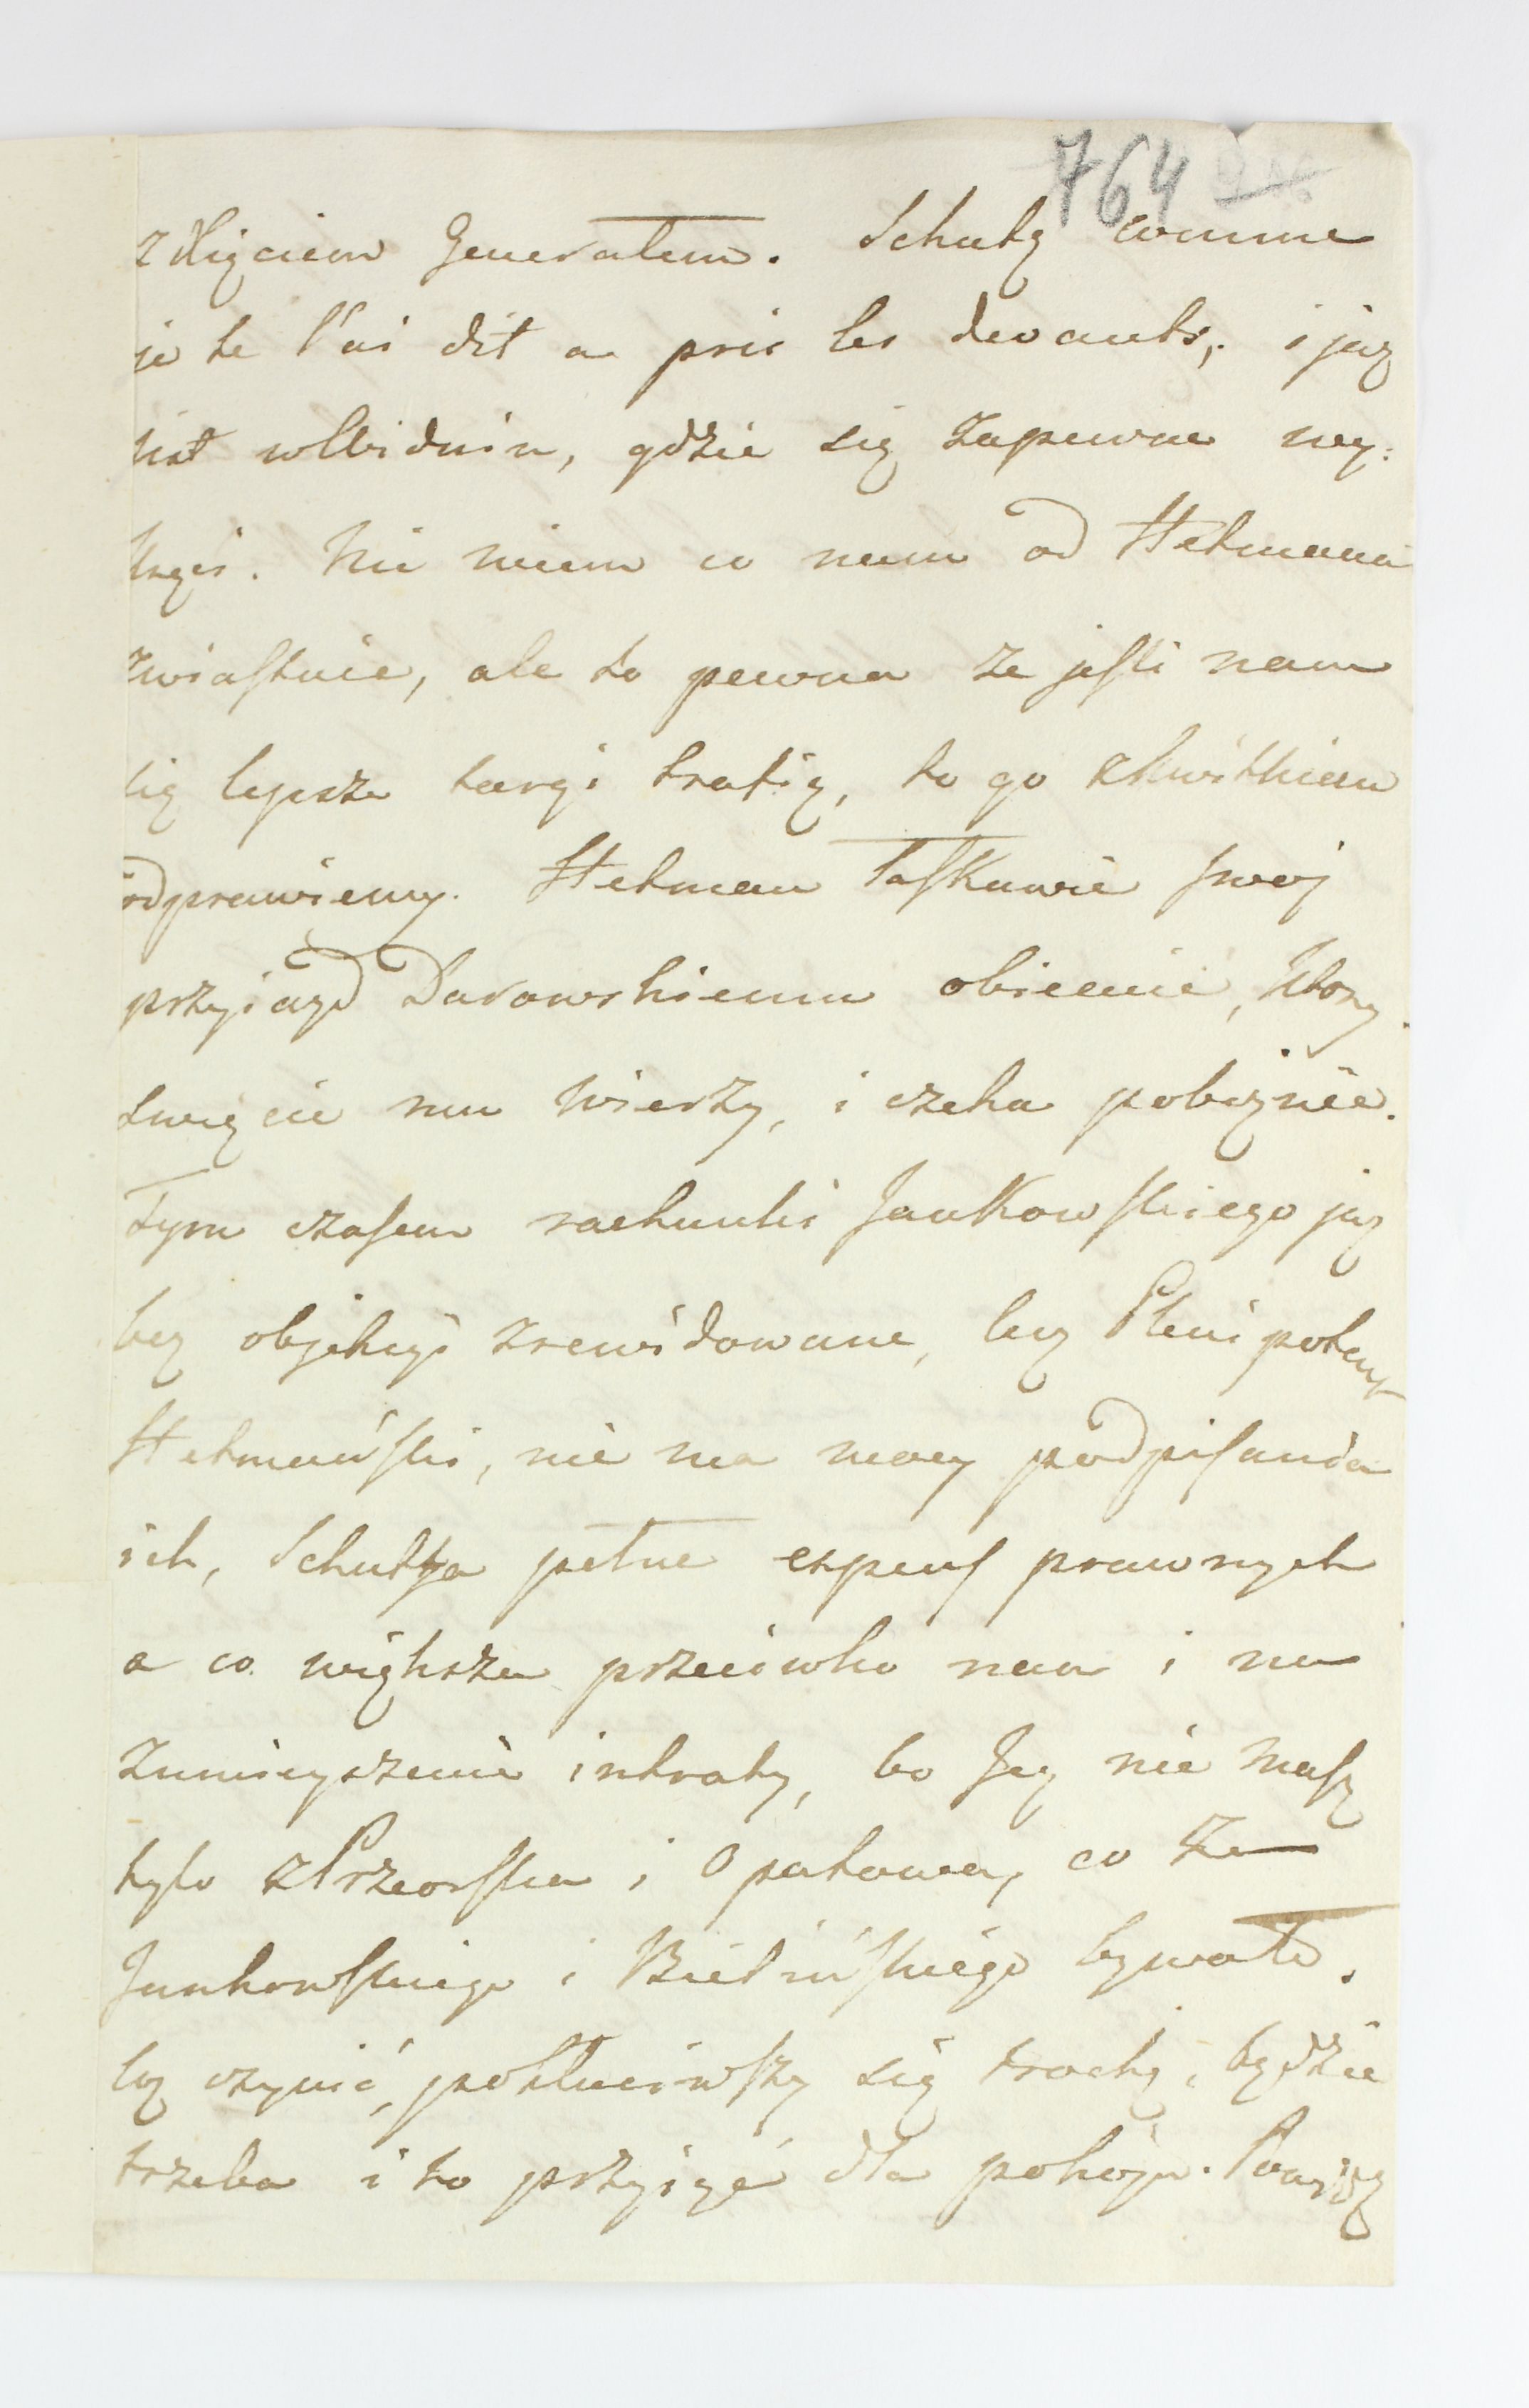 764
z Xięciem Generałem. Schutz comme
je te l'ai dit a pris les devants, i juz
jest w Widniu, gdzie się zapewne wy:
kręci. Nie wiem co nam od Hetmana
zwiastuie, ale to pewna ze jesli nam
się lepsze targi trafią, to go z kwitkiem
odprawiemy. Hetman łaskawie swoj
przyiazd Darowskiemu obiecuie, ktory
swięcie mu wierzy, i czeka pobożnie.
Tym czasem rachunki Jankowskiego juz
bez objekcyi zrewidowane, lecz Plenipotent
Hetmański, nie ma mocy podpisania
ich, Schutza pełne expens prawnych
a co większa przeciwko nam i na
zmnieyszenie intraty, bo Jey nie masz
tylo z Przeorska i Opatowa, co za
Jankowskiego i Bielińskiego bywało.
Coz czynić, pokłuciwszy się trochę, będzie
trzeba i to przyiąć dla pokoju.